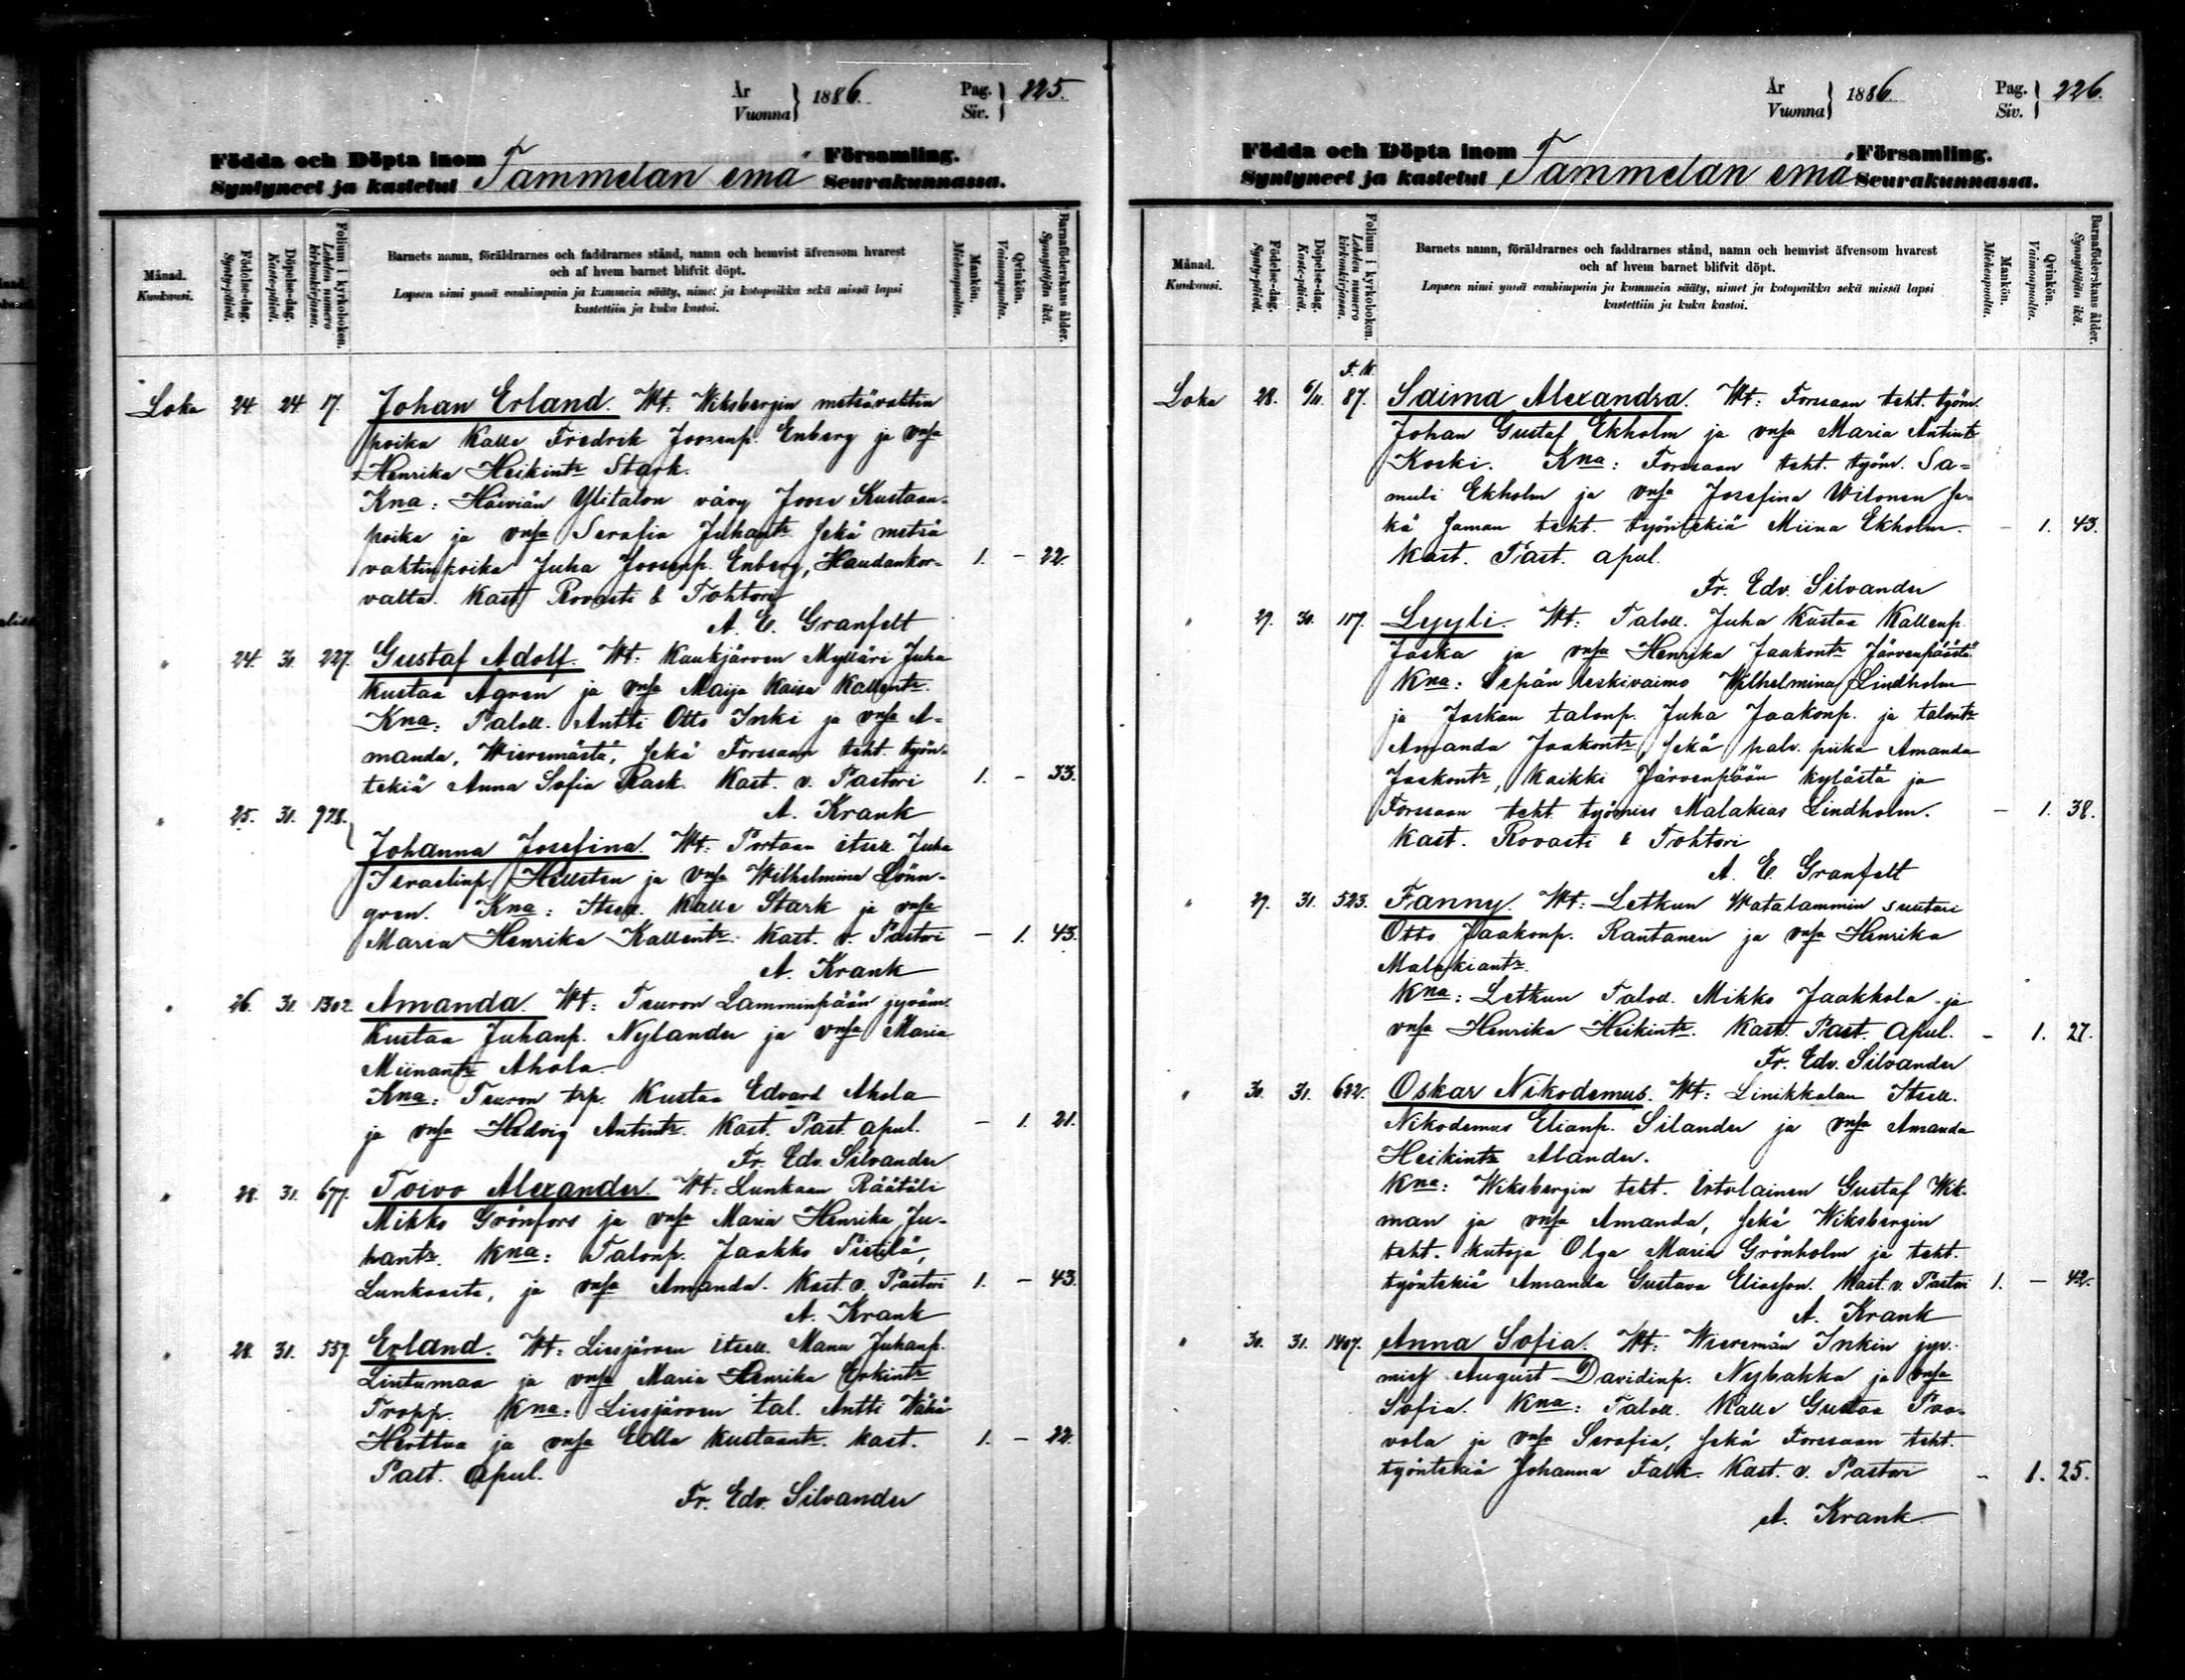 År
Vuonna } 1886. Pag.
Siv. } 225.
Födda och Döpta inom Tammelan emä Församling.
Syntyneet ja kastetut Seurakunnassa.
Månad.
Kuukausi.
Födelse-dag.
Synty-päivä.
Döpelse-dag.
Kaste-päivä.
Folium i kyrkoboken.
Lehden numero kirkonkirjassa.
Barnets namn, föräldrarnes och faddrarnes stånd, namn och hemvist äfvensom hvarest
och af hvem barnet blifvit döpt.
Lapsen nimi ynnä vanhimpain ja kummein sääty, nimet ja kotopaikka sekä missä lapsi
kastettiin ja kuka kastoi.
Mankön.
Miehenpuolia.
Qvinkön.
Vaimonpuolia.
Barnaföderskans ålder.
Synnyttäjän ikä.
Loka 24. 24. 17. Johan Erland. Wt: Wiksbergin metsävahtin
poika Kalle Fredrik Joosenp. Enberg ja vmsa
Henrika Heikintr Stark.
Kna: Häiviän Ylitalon väry Joose Kustaan-
poika ja vmsa Serafia Juhantr sekä metsä
vahtinpoika Juha Joosenp. Enberg, Haudankor- 1. - 22.
valta. Kast. Rovasti & Tohtori
A. E. Granfelt
" 24. 31. 227. Gustaf Adolf. Wt: Kaukjärven Mylläri Juha
Kustaa Agren ja vmsa Maija Kaisa Kallentr.
Kna: Taloll. Antti Otto Inki ja vmsa A-
manda, Wieremästä, sekä Forssan teht. työn-
tekiä Anna Sofia Rask. Kast. v. Pastori 1. - 33.
A. Krank
" 25. 31. 928. Johanna Josefina. Wt: Portaan itsell. Juha
Israelinp. Hellsten ja vmsa Wilhelmina Lönn-
gren. Kna: Itsell. Kalle Stark ja vmsa
Maria Henrika Kallentr. Kast. v. Pastori - 1. 43.
A. Krank
" 26. 31. 1302. Amanda. Wt: Teuron Lamminpään jyväm.
Kustaa Juhanp. Nylander ja vmsa Maria
Miinantr Ahola.
Kna: Teuron trp. Kustaa Edvard Ahola
ja vmsa Hedvig Antintr. Kast. Past. apul. - 1. 21.
Fr. Edv. Silvander
" 28. 31. 677. Toivo Alexander. Wt: Lunkaan Räätäli
Mikko Grönfors ja vmsa Maria Henrika Ju-
hantr. Kna: Talonp. Jaakko Pietilä,
Lunkaasta, ja vmsa Amanda. Kast. v. Pastori 1. - 43.
A. Krank
" 28. 31. 559. Erland. Wt: Liesjärven itsell. Manu Juhanp.
Lintumaa ja vmsa Maria Henrika Erkintr
Tropp. Kna: Liesjärven tal. Antti Wähä
Herttua ja vmsa Edla Kustaantr. Kast. 1. - 22.
Past. Apul.
Fr. Edv. Silvander
År
Vuonna } 1886. Pag.
Siv. } 226.
Födda och Döpta inom Tammelan emä Församling.
Syntyneet ja kastetut Seurakunnassa.
Månad.
Kuukausi.
Födelse-dag.
Synty-päivä.
Döpelse-dag.
Kaste-päivä.
Folium i kyrkoboken.
Lehden numero kirkonkirjassa.
Barnets namn, föräldrarnes och faddrarnes stånd, namn och hemvist äfvensom hvarest
och af hvem barnet blifvit döpt.
Lapsen nimi ynnä vanhimpain ja kummein sääty, nimet ja kotopaikka sekä missä lapsi
kastettiin ja kuka kastoi.
Mankön.
Miehenpuolia.
Qvinkön.
Vaimonpuolia.
Barnaföderskans ålder.
Synnyttäjän ikä.
Loka 28. 6/11. 87. Saima Alexandra. Wt: Forssan teht. työm.
Johan Gustaf Ekholm ja vmsa Maria Antintr
Koski. Kna: Forssaan teht. työm. Sa-
muli Ekholm ja vmsa Josefina Wilonen se-
kä saman teht. työntekiä Miina Ekholm. - 1. 43.
Kast. Past. apul.
Fr. Edv. Silvander
" 29. 30. 117. Lyyli. Wt: Taloll. Juha Kustaa Kallenp.
Jaska ja vmsa Henrika Jaakontr Järvenpäästä.
Kna: Sepän leskivaimo Wilhelmina Lindholm
ja Jaskan talonp. Juha Jaakonp. ja talontr
Amanda Jaakontr, sekä palv. piika Amanda
Jaakontr, kaikki Järvenpään kylästä ja
Forssaan teht. työmies Malakias Lindholm. - 1. 38.
Kast. Rovasti & Tohtori
A. E. Granfelt
" 29. 31. 523. Fanny. Wt: Letkun Watalammin suutari
Otto Jaakonp. Rantanen ja vmsa Henrika
Malakiantr.
Kna: Letkun Talod. Mikko Jaakkola ja
vmsa Henrika Heikintr. Kast. Past. Apul. - 1. 27.
Fr. Edv. Silvander
" 30. 31. 622. Oskar Nikodemus. Wt: Linikkalan Itsell.
Nikodemus Elianp. Silander ja vmsa Amanda
Heikintr Alander.
Kna: Wiksbergin teht. Irtolainen Gustaf Wik-
man ja vmsa Amanda, sekä Wiksbergin
teht. kutoja Olga Maria Grönholm ja teht.
työntekiä Amanda Gustava Eliasson. Kast. v. Pastori 1. - 42.
A. Krank
" 30. 31. 1407. Anna Sofia. Wt: Wieremän Inkin jyv.
mies August Davidinp. Nybakka ja vmsa
Sofia. Kna: Taloll. Kalle Gustaa Paa-
vola ja vmsa Serafia, sekä Forssaan teht.
työntekiä Johanna Falk. Kast. v. Pastori - 1. 25.
A. Krank